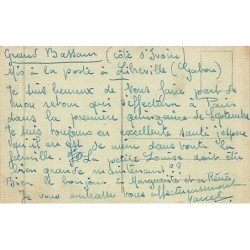 Grand Bassam (côte d'Ivoire)
Mis à la poste à Libreville (Gabon)
Je suis heureux de vous faire part de
mon retour qui s'effectuera à Paris
dans la première quinzaine de Septembre
Je suis toujours en excellente santé j'espère
qu'il en est de même dans toute la
famille. La petite Louise doit être
bien grande maintenant ??
Bien le bonjour à Marguerite et à
Je vous embrasse tous affectueusement
Marcel